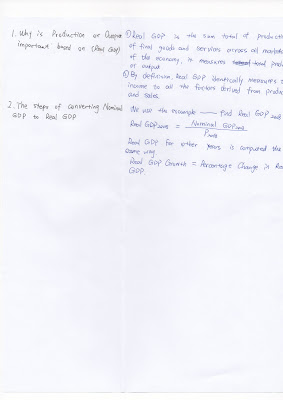 1. Why is Production or Output
important based on (Real GDP)
① Real GDP is the sum total of production
of final goods and services across all markets
of the economy, it measures total
or output
② By definition, Real GDP identically measures
income to all the factors derived from
and sales.
2. The steps of converting Nominal
GDP to Real GDP
We use the example —— find Real GDP
Real GDP = Nominal GDP
P
Real GDP for other years is computed the
same way.
Real GDP Growth = Percentage Change in Real
GDP.